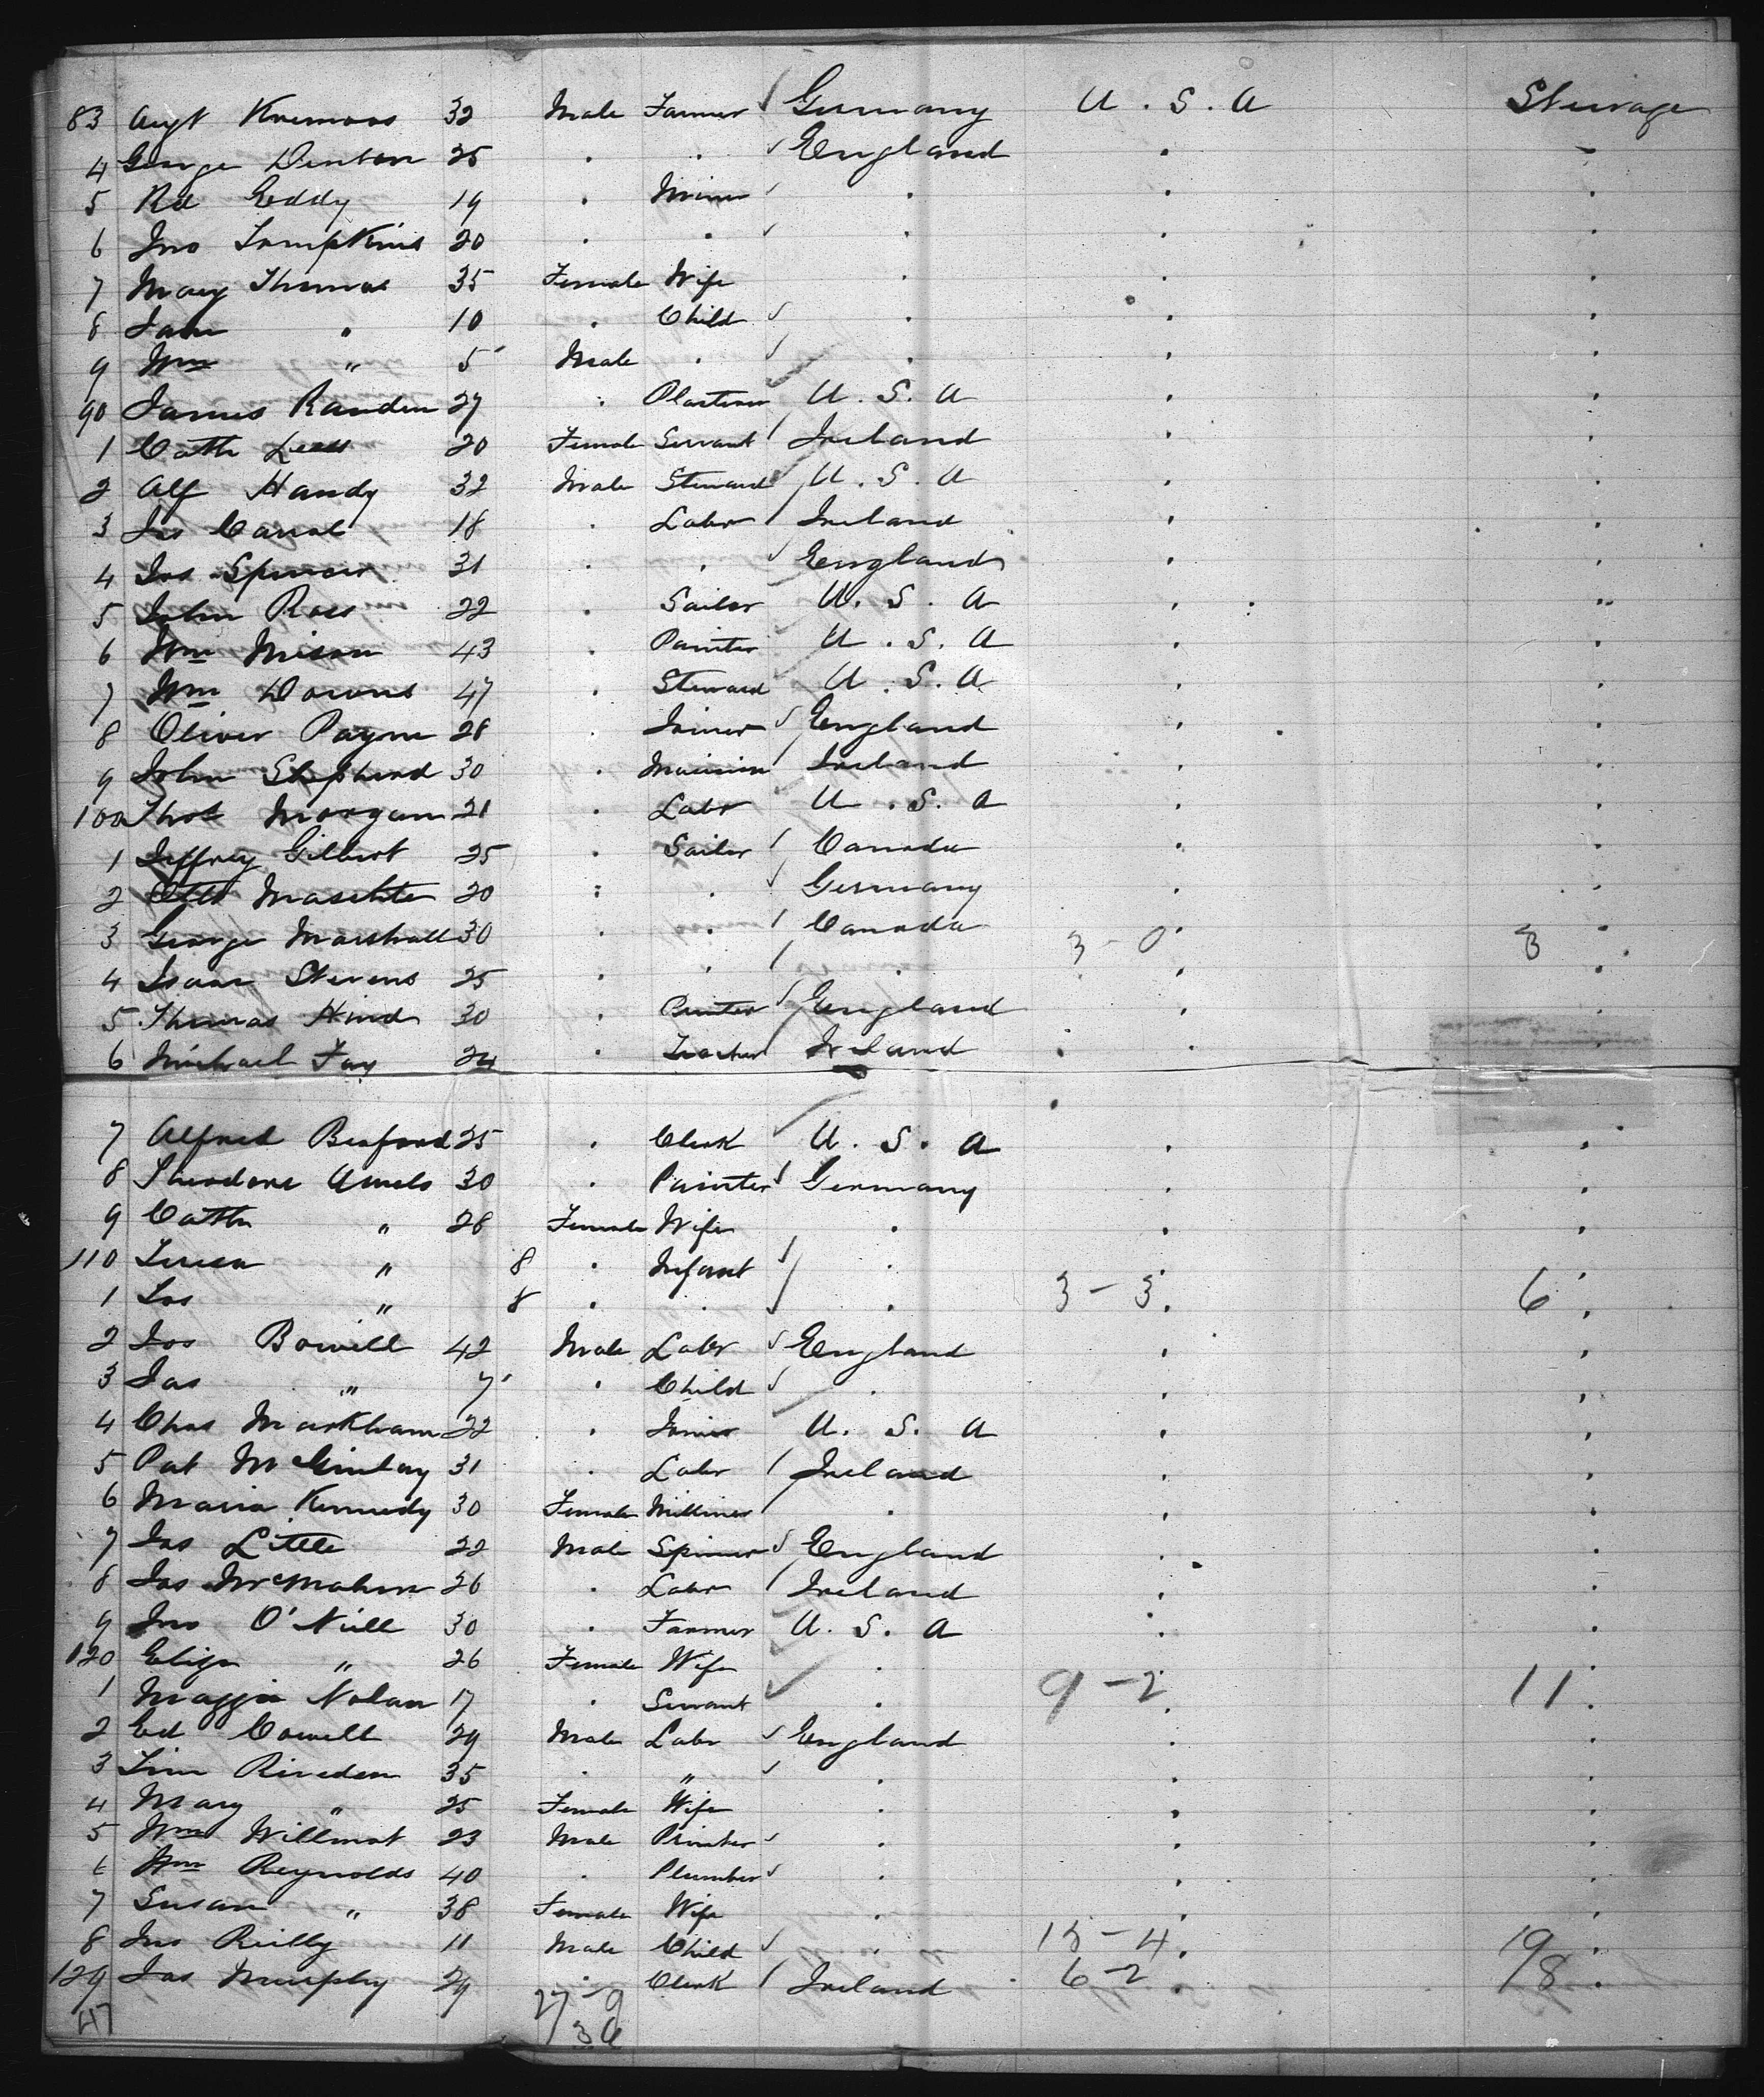 83 Augt Kremoos 32 Male Farmer √ Germany U. S. A Steerage
4 George Denton 25 . . √ England . "
5 Rd Eddy 19 . Miner √ . . .
6 Jno Tompkins 20 . . √ . . .
7 Mary Thomas 35 Female Wife . . .
8 Jane " 10 . Child √ . . .
9 Wm " 5 Male . √ . . .
90 James Randen 27 . Plasterer √ U. S. A . .
1 Cath Lees 20 Female Servant / Ireland . .
2 Alf Handy 32 Male Steward √ U. S. A . .
3 Jas Carrol 18 . Labr / Ireland . .
4 Jos Spencer 31 . . √ England . .
5 John Ross 22 . Sailor U. S. A . .
6 Wm Mison 43 . Painter √ U. S. A . .
7 Wm Downs 47 . Steward √ U. S. A . .
8 Oliver Payne 28 . Joiner √ England . .
9 John Shepherd 30 . / Ireland . .
100 Thos Morgan 21 . Labr √ U. S. A . .
1 Jeffrey Gilbert 25 . Sailor / Canada . .
2 Otto Maschte 20 . . √ Germany . .
3 George Marshall 30 . . / Canada 3 - 0 . 3 .
4 Isaac Stevens 25 . . / . . .
5 Thomas Hind 30 . √ England . .
6 Michael Fay 24 . Teacher / Ireland . .
7 Alfred Bexford 25 . Clerk √ U. S. A . .
8 Theodore Amels 30 . Painter √ Germany . .
9 Cath " 28 Female Wife . . .
110 Teresa " 8 . Infant √ . . .
1 " 8 . . √ . 3 - 3 . 6 .
2 Jos Bowill 42 Male Labr √ England . .
3 Jas " 7 . Child √ . . .
4 Chas Markham 22 . Joiner √ U. S. A . .
5 Pat McGinlay 31 . Labr / Ireland . .
6 Maria Kennedy 30 Female Milliner / . . .
7 Jas Little 22 Male Spinner √ England . .
8 Jas McMahon 26 . Labr / Ireland . .
9 Jno O'Neill 30 . Farmer √ U. S. A . .
120 Eliza " 26 Female Wife √ . . .
1 Maggie Nolan 17 . Servant √ . 9 - 2 . 11 .
2 Ed Cowell 29 Male Labr √ England . .
3 Jim Riveden 35 . " √ . . .
4 Mary " 25 Female Wife . . .
5 Wm Willmot 23 Male Printer √ . . .
6 Wm Reynolds 40 . Plumber √ . . .
7 Susan " 38 Female Wife . . .
8 Jno Reilly 11 Male Child √ . 15 - 4 . 19 .
129 Jas Murphy 29 . Clerk / Ireland 6 - 2 . 8 .
47 27 - 9
36